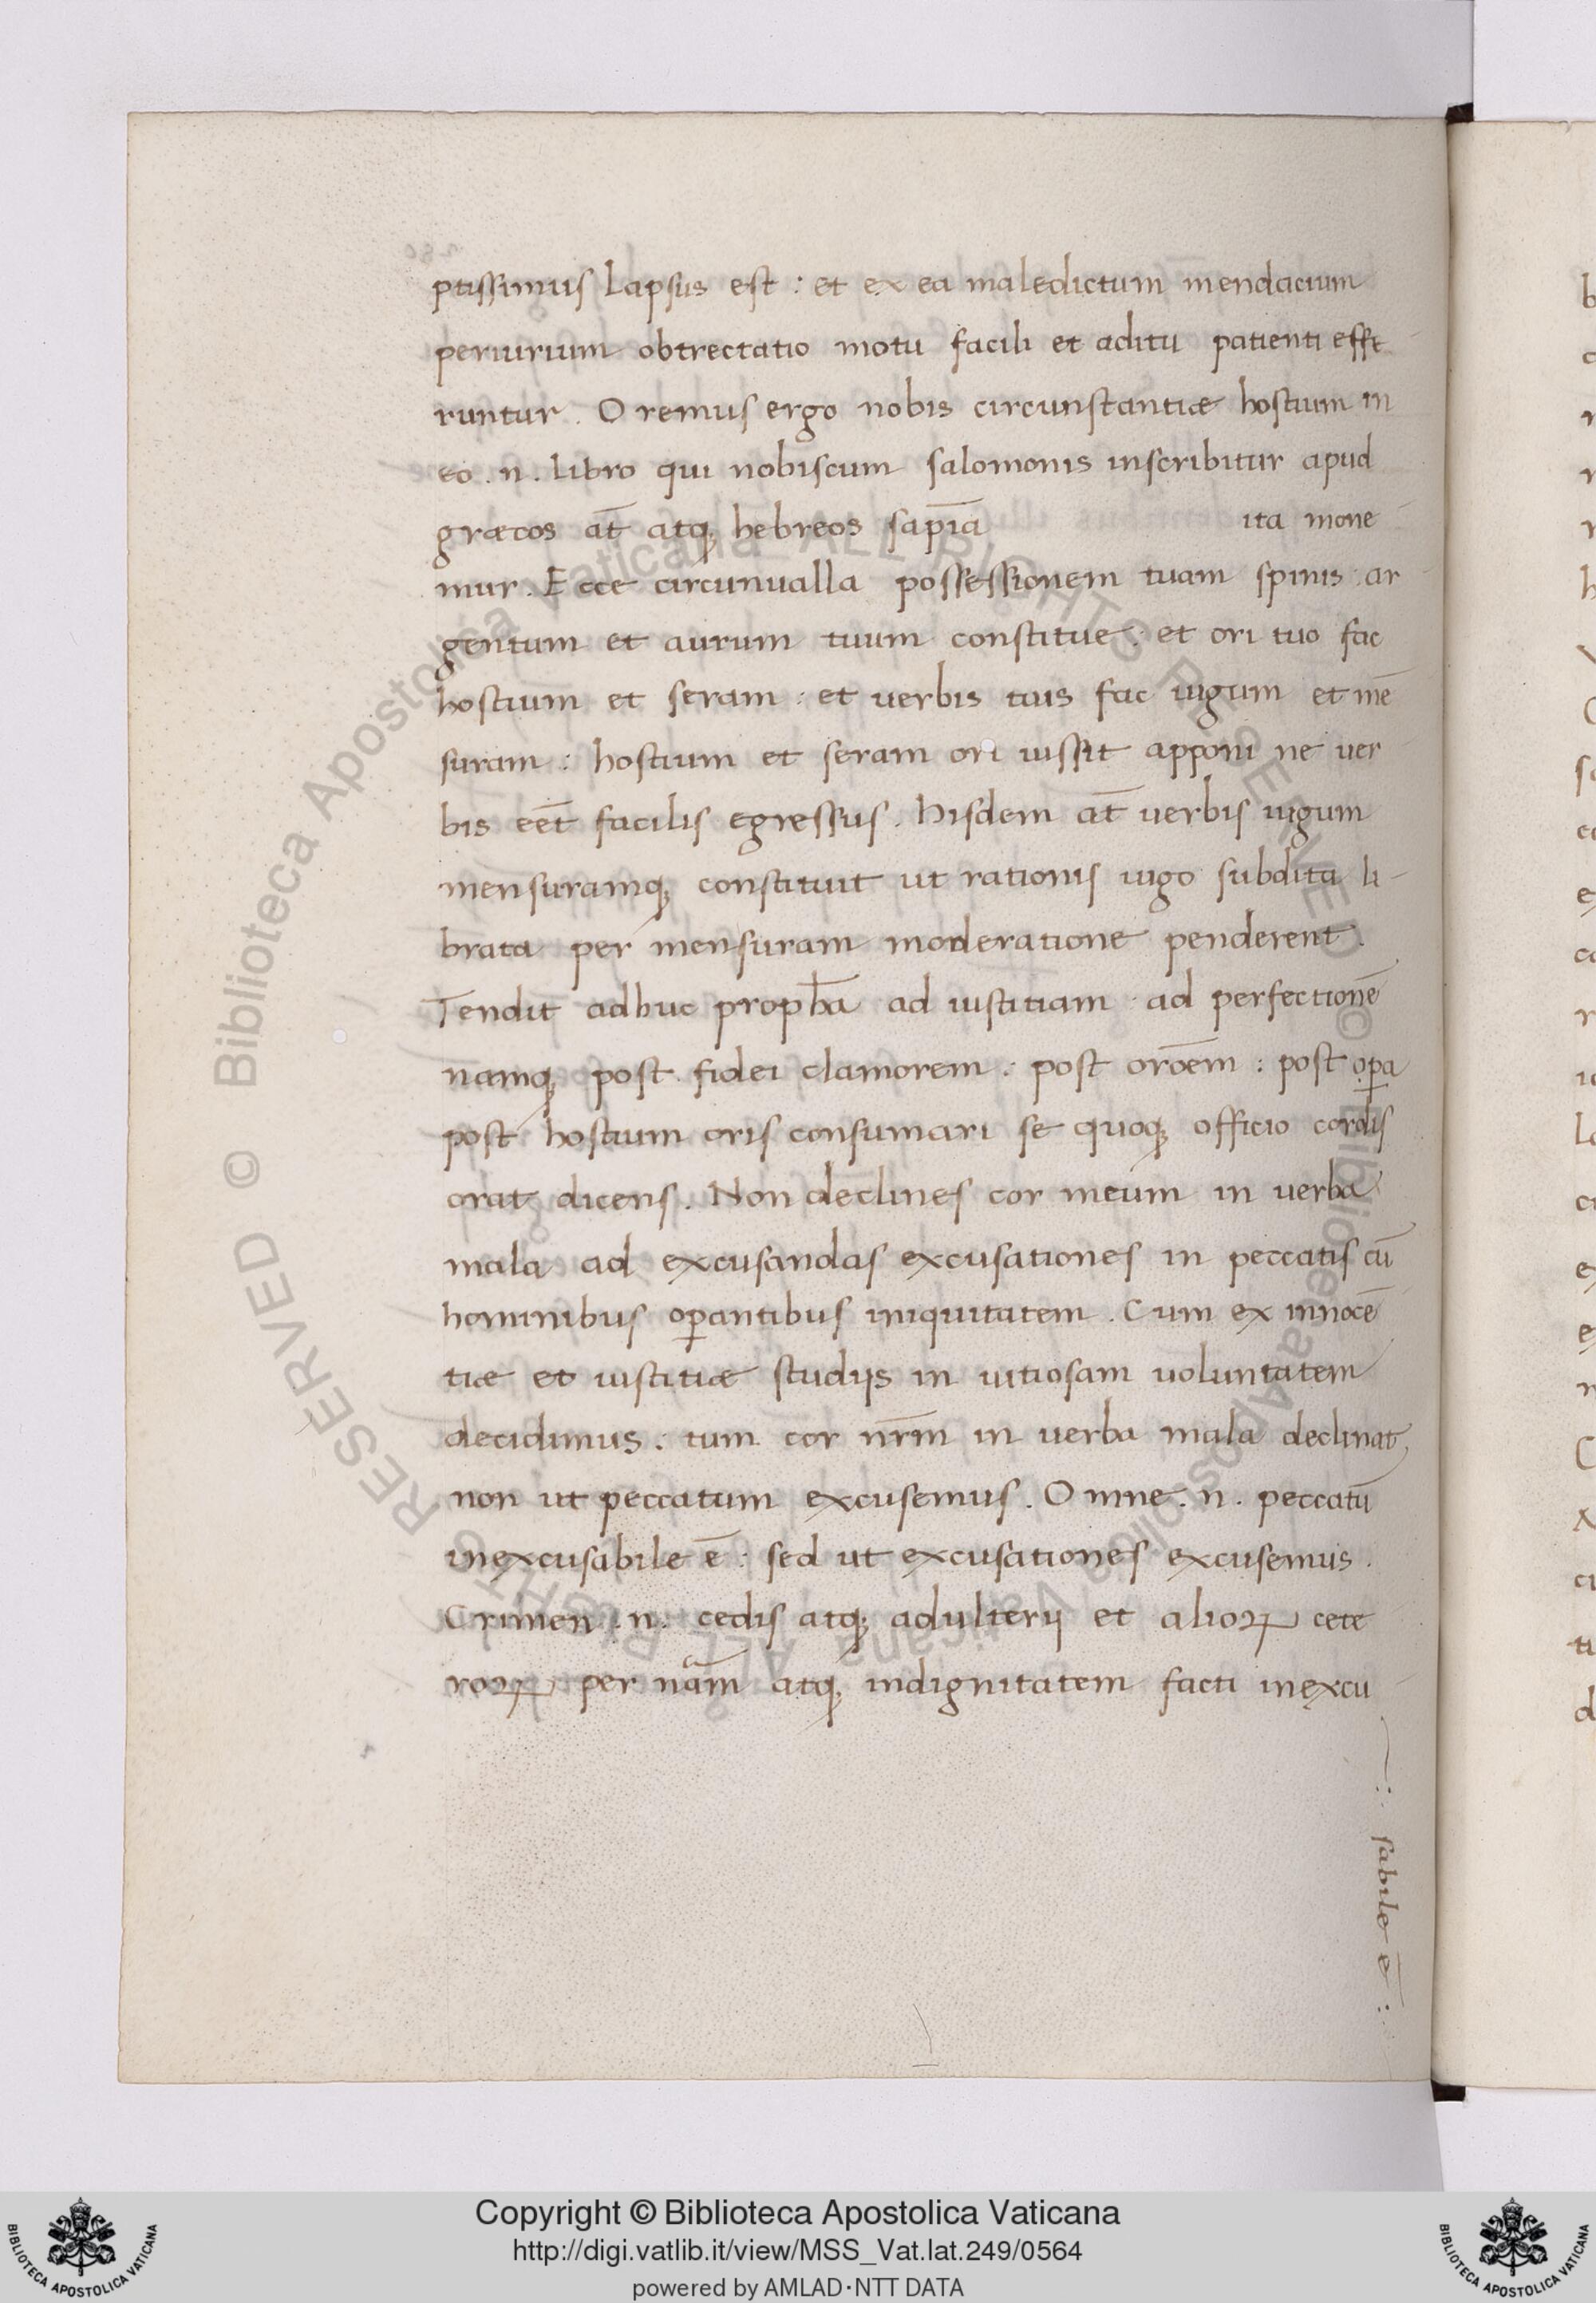 ptissimus lapsus est : et ex ea maledictum mendacium
periurium obtrectatio motu facili et aditu patienti effe
runtur . Oremus ergo nobis circunstantiæ hostium in
eo . n . libro qui nobiscum salomonis inscribitur apud
græcos at̄ atq; hebreos sapīa ita mone
mur . Ecce circunualla possessionem tuam spinis : ar
gentum et aurum tuum constitue : et ori tuo fac
hostium et seram : et uerbis tuis fac iugum et mē
suram : hostium et seram ori iussit apponi ne uer
bis eēt facilis egressus . hisdem at̄ uerbis iugum
mensuramq; constituit ut rationis iugo subdita li-
brata per mensuram moderatione penderent .
Tendit adhuc prophīa ad iustitiam : ad perfectionē
namq; post fidei clamorem : post orōem : post oꝑa
post hostium oris consumari se quoq; officio cordis
orat dicens . Non declines cor meum in uerba
mala ad excusandas excusationes in peccatis cū
hominibus oꝑantibus iniquitatem . Cum ex innocē
tiæ et iustitiæ studijs in uitiosam uoluntatem
decidimus : tum cor nr̄m in uerba mala declinat
non ut peccatum excusemus . Omne . n . peccatū
inexcusabile ē : sed ut excusationes excusemus .
Crimen . n . cedis atq; adulterij et alioꝝ cete
roꝝ per nām atq; indignitatem facti inexcu
sabile ē :
© Biblioteca Apostolica Vaticana ALL RIGHTS RESERVED © Biblioteca Apostolica Vaticana ALL RIGHTS RESERVED
Copyright © Biblioteca Apostolica Vaticana
http://digi.vatlib.it/view/MSS_Vat.lat.249/0564
powered by AMLAD·NTT DATA
BIBLIOTECA APOSTOLICA VATICANA
BIBLIOTECA APOSTOLICA VATICANA